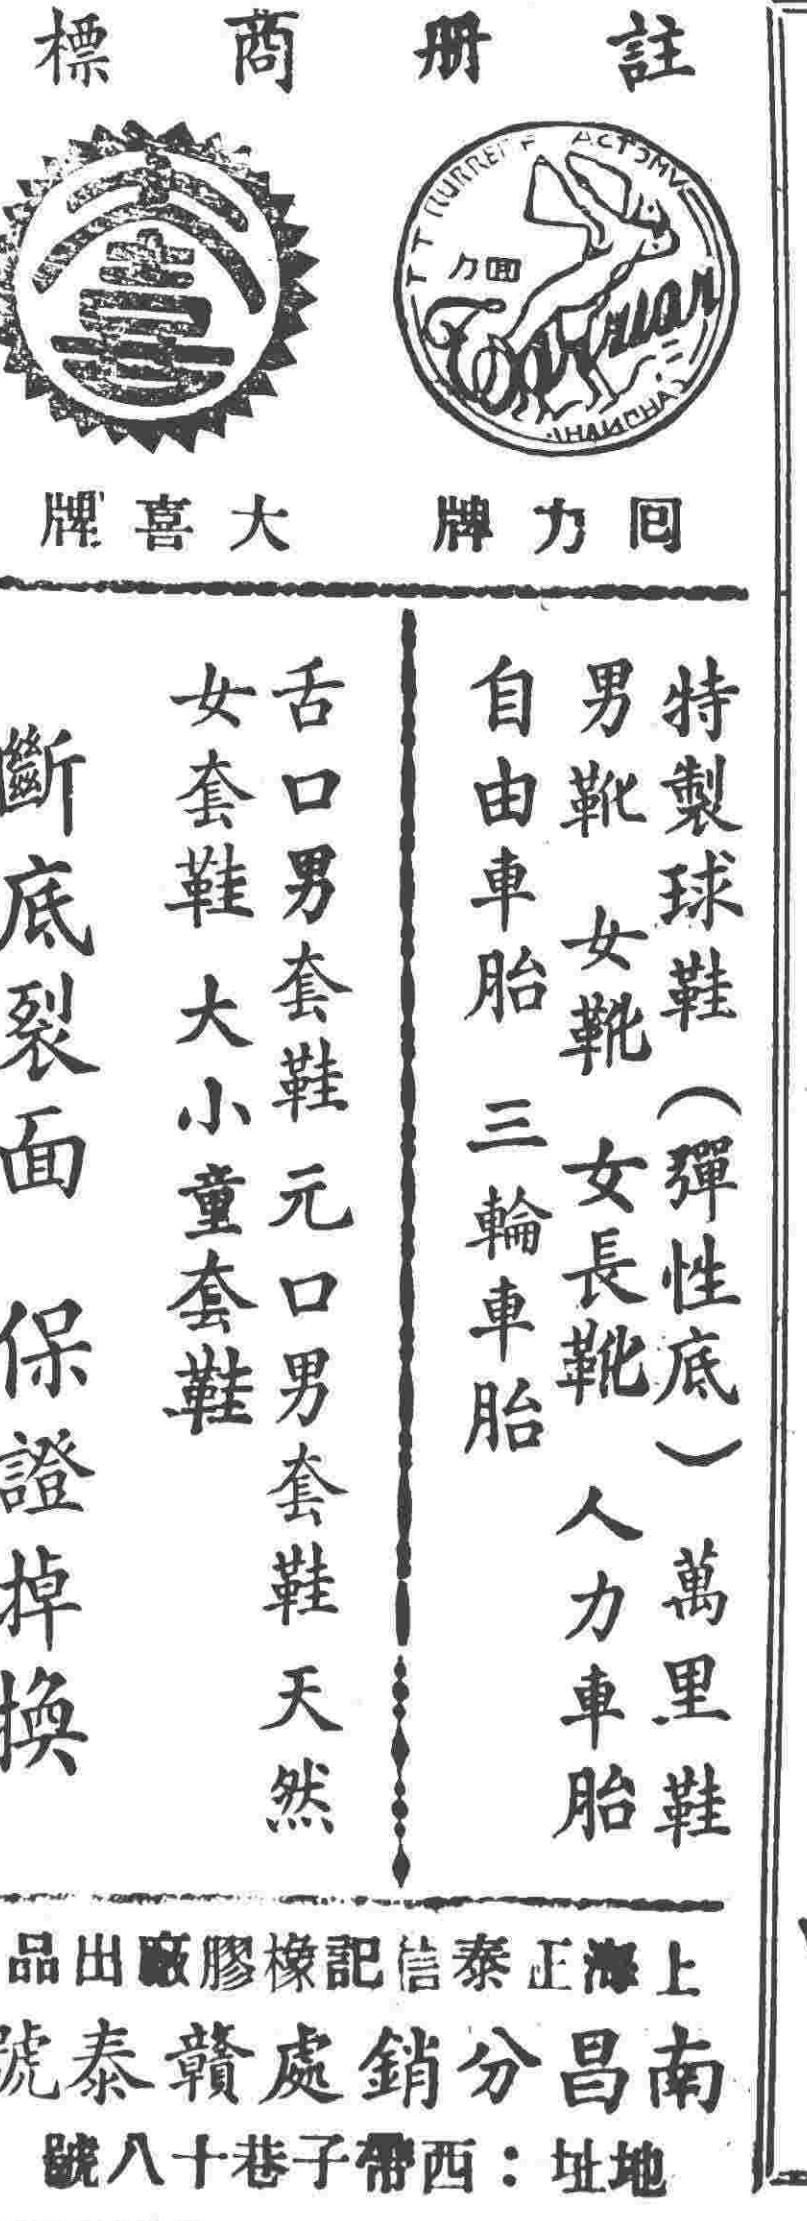 註册商標
回力
Warrior
SHANGHAI
回力牌
大喜牌
特製球鞋（彈性底）　萬里鞋
男靴　女靴　女長靴　人力車胎
自由車胎　三輪車胎
舌口男套鞋　元口男套鞋　天然
女套鞋　大小童套鞋
斷底裂面　保證掉換
上海正泰信記橡膠廠出品
南昌分銷處贛泰號
地址：西帶子巷十八號